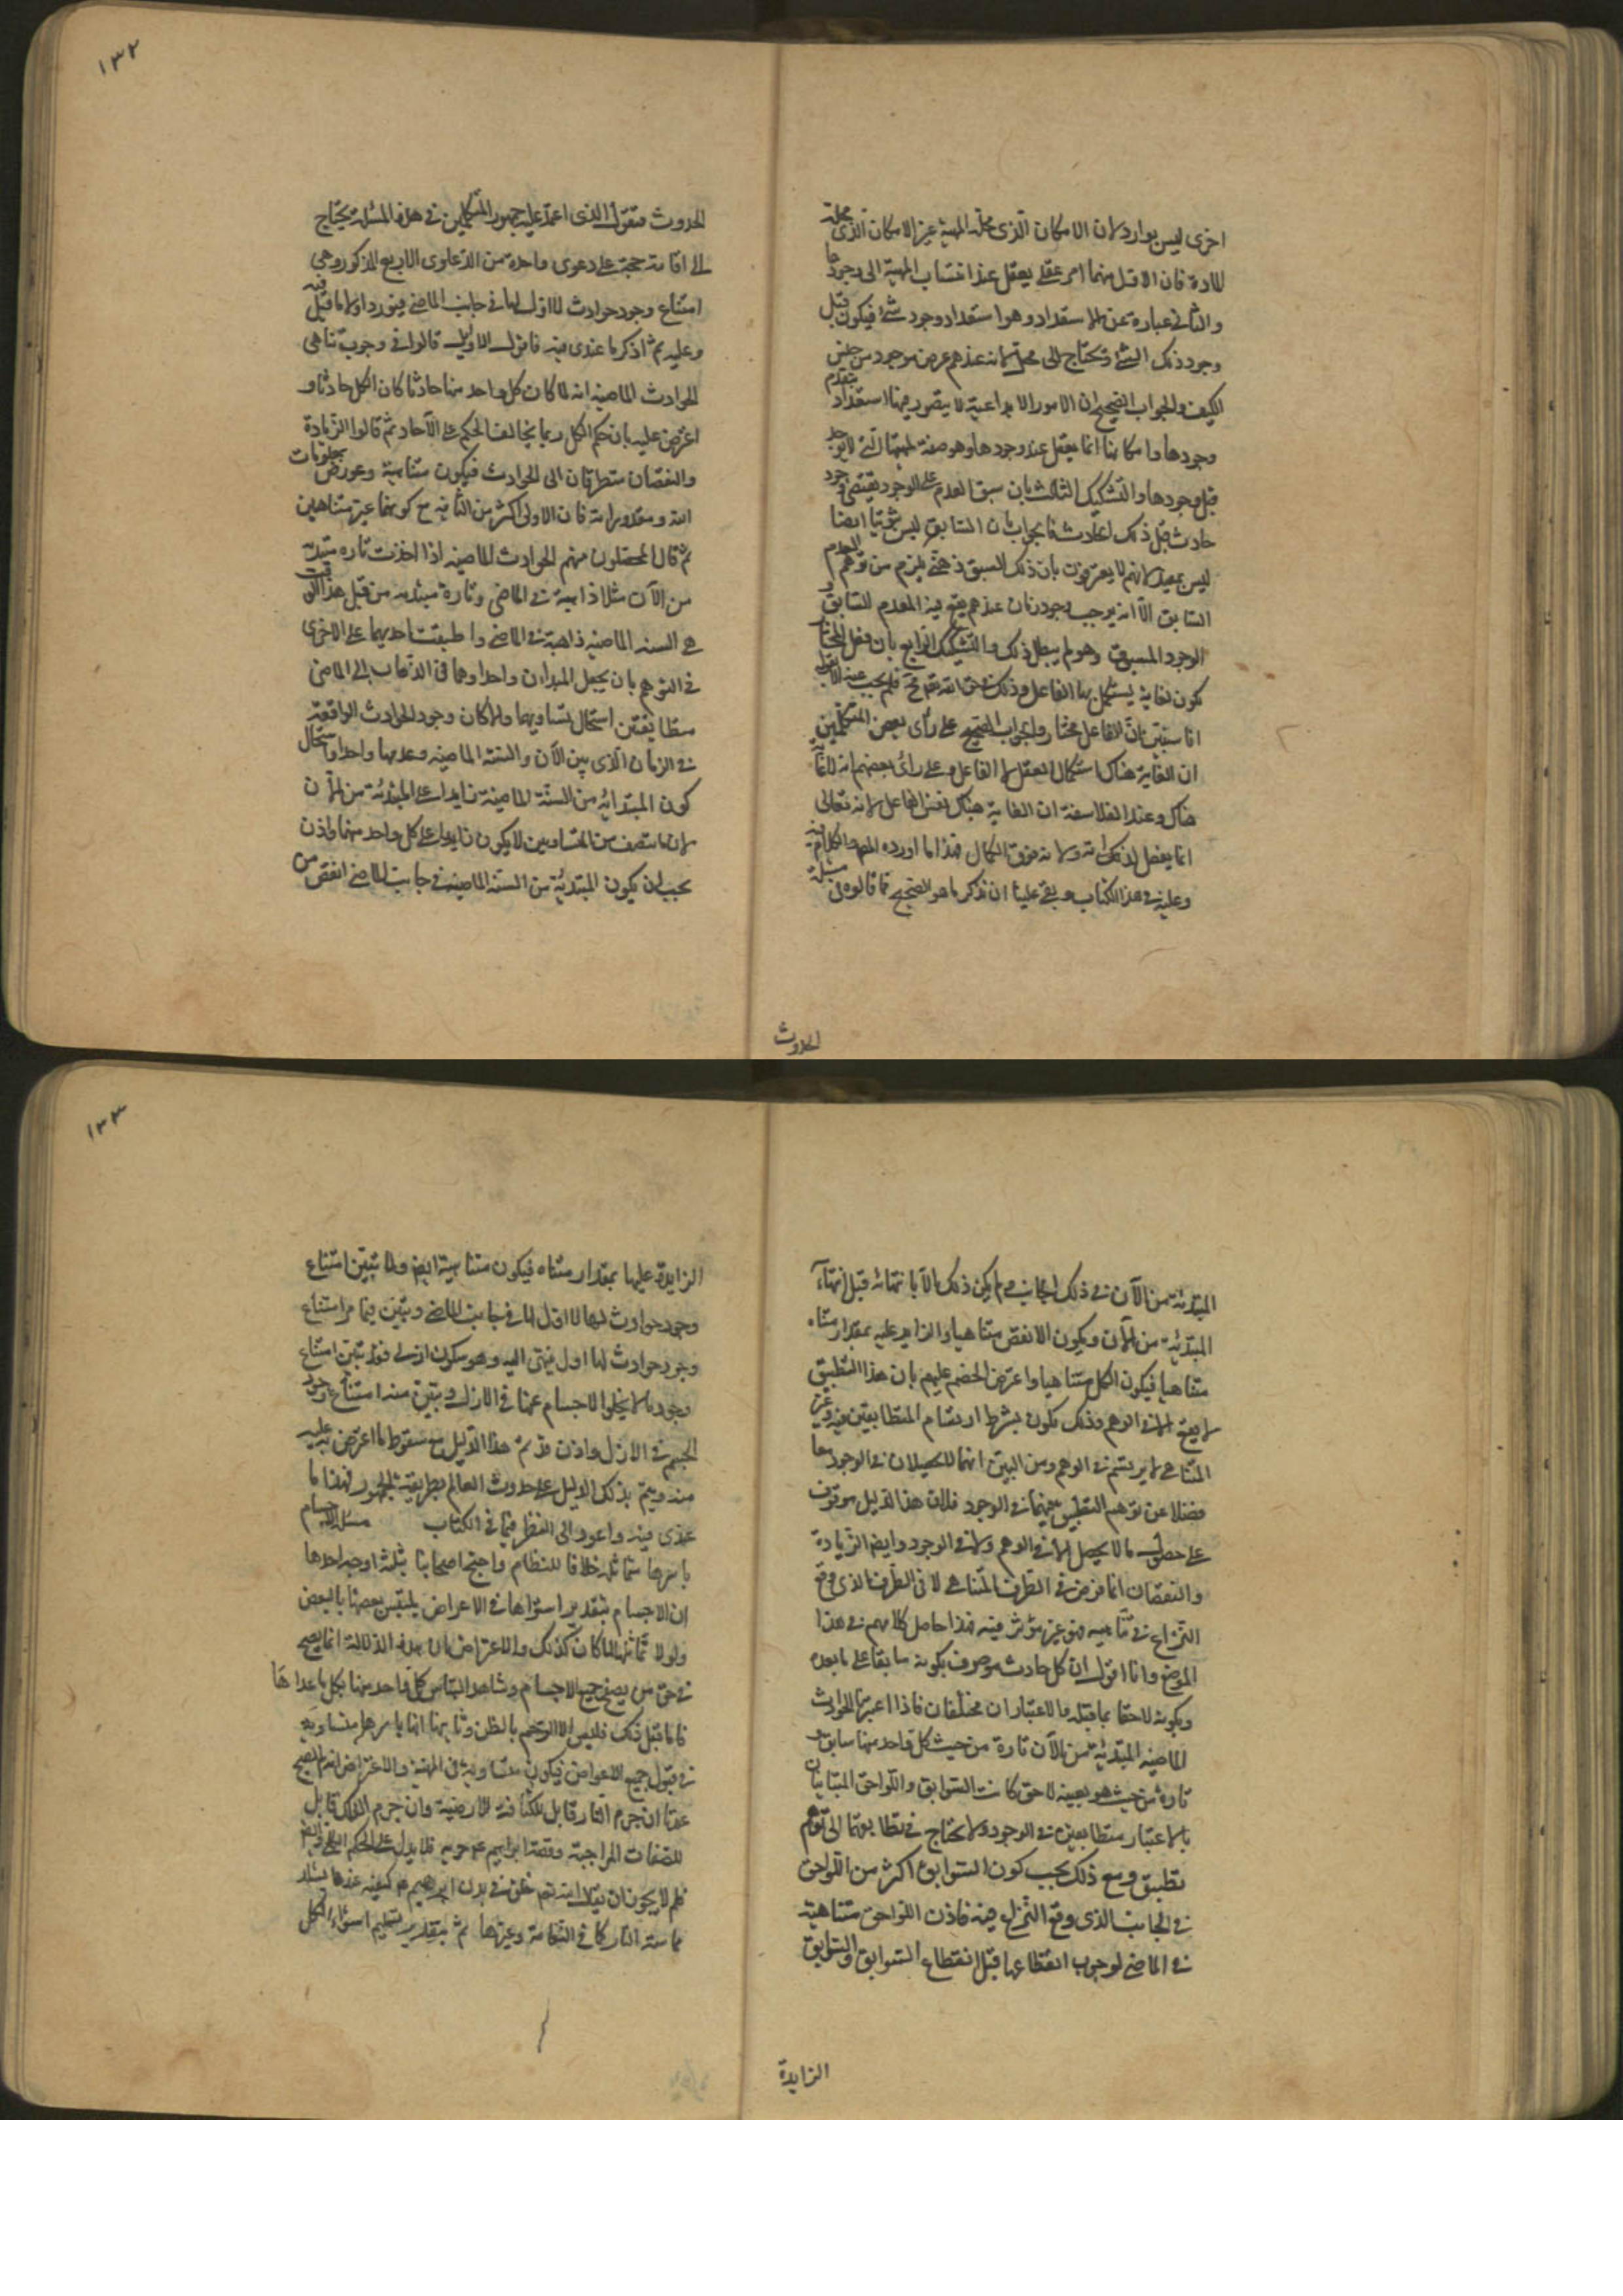 اخرى ليس بوارد لان الامكان الذى محله المهية غير الامكان الذى محله
المادة فان الاول منهما امر عقلى يعقل عند انتساب المهية الى وجودها
والثانى عبارة عن الاستعداد وهو استعداد وجود شئ فيكون قبل
وجود ذلك الشئ ويحتاج الى محل لانه عندهم عرض موجود من جنس
الكيف والجواب الصحيح ان الامور الابداعية لا يتصور فيها استعداد يتقدم
وجودها وامكانها انما يعقل عند وجودها وهو صفة لمهياتها التى لا توجد
قبل وجودها والتشكيك الثالث بان سبق العدم على الوجود يقتضى وجود
حادث قبل ذلك الحادث فالجواب بان السابق ليس ثبوتيا ايضا
ليس بمفيد لانهم لا يعترفون بان ذلك السبق ذهنى يلزم من توهم العدم
السابق الا انه يوجب وجود زمان عندهم يقع فيه العدم السابق و
الوجود المسبوق وهو لم يبطل ذلك والتشكيك الرابع بان فعل المختار
يكون لغاية يستكمل بها الفاعل وذلك فى حق الله تعالى مح فلم يجب عنه الا بقوله
انا سنبين ان الفاعل مختار والجواب الصحيح على رأى بعض المتكلمين
ان الغاية هناك استكمال الفعل لا الفاعل وعلى رأى بعضهم انه لا غاية
هناك وعند الفلاسفة ان الغاية هناك نفس الفاعل لانه تعالى
انما يفعل لذاته ولانه فوق الكمال فهذا ما اورده المص والكلام فيه
وعليه فى هذا الكتاب وبقى علينا ان نذكر ما هو الصحيح مما قالوه فى مسئلة
الحدوث
١٣٢
الحدوث فنقول الذى اعتمد عليه جمهور المتكلمين فى هذه المسئلة يحتاج
الى اقامة حجة على دعوى واحدة من الدعاوى الاربع المذكور وهى
امتناع وجود حوادث لا اول لها فى جانب الماضى فنورد اولا ما قيل فيه
وعليه ثم اذكر ما عندى فيه فاقول الاوايل قالوا فى وجوب تناهى
الحوادث الماضية انه لما كان كل واحد منها حادثا كان الكل حادثا و
اعترض عليه بان حكم الكل ربما يخالف الحكم على الآحاد ثم قالوا الزيادة
والنقصان يتطرقان الى الحوادث فيكون متناهية وعورض بمعلومات
الله ومقدوراته فان الاولى اكثر من الثانية مع كونهما غير متناهيين
ثم قال المحصلون منهم الحوادث الماضية اذا اخذت تارة مبتدئة
من الآن مثلا ذاهبة فى الماضى وتارة مبتدئة من قبل هذا الوقت
من السنة الماضية ذاهبة فى الماضى واطبقت احديهما على الاخرى
فى التوهم بان يجعل المبدءان واحدا وهما فى الذهاب الى الماضى
متطابقتين استحال تساويهما والا كان وجود الحوادث الواقعة
فى الزمان الذى بين الآن والسنة الماضية وعدمها واحدا واستحال
كون المبتدائة من السنة الماضية زايدا على المبتدئة من الآن
لان ما ينقص من المتساويين لا يكون زايدا على كل واحد منهما فاذن
يجب ان يكون المبتدئة من السنة الماضية فى جانب الماضى انقص من
المبتدئة من الآن فى ذلك الجانب ولم يكن ذلك الا بانتهائه قبل انتهاء
المبتدئة من الآن ويكون الانقص متناهيا والزايد عليه بمقدار متناه
متناهيا فيكون الكل متناهيا واعترض الخصم عليهم بان هذا التطبيق
لا يقع الا فى الوهم وذلك يكون بشرط ارتسام المتطابقين فيه وغير
المتناهى لا يرتسم فى الوهم ومن البين انهما لا يحصلان فى الوجود معا
فضلا عن توهم التطبيق بينهما فى الوجود فاذن هذا الدليل موقوف
على حصول ما لا يحصل لا فى الوهم ولا فى الوجود وايضا الزيادة
والنقصان انما فرض فى الطرف المتناهى لا فى الطرف الذى وقع
النزاع فى تناهيه فهو غير مؤثر فيه فهذا حاصل كلامهم فى هذا
الموضع وانا اقول ان كل حادث موصوف بكونه سابقا على ما بعده
وبكونه لاحقا بما قبله والاعتباران مختلفان فاذا اعتبرنا الحوادث
الماضية المبتدئة من الآن تارة من حيث كل واحد منها سابق و
تارة من حيث هو بعينه لاحق كانت السوابق واللواحق المتباينان
بالاعتبار متطابقين فى الوجود ولا يحتاج فى تطابقهما الى توهم
تطبيق ومع ذلك يجب كون السوابق اكثر من اللواحق
فى الجانب الذى وقع النزاع فيه فاذن اللواحق متناهية
فى الماضى لوجوب انقطاعها قبل انقطاع السوابق والسوابق
الزايدة
١٣٣
الزايدة عليها بمقدار متناه فيكون متناهية ايضا ولما تبين امتناع
وجود حوادث لا اول لها فى جانب الماضى وتبين فيما مر امتناع
وجود حوادث لها اول ينتهى اليه وهو سكون ازلى فقد تبين امتناع
وجود ما لا يخلو الاجسام عنها فى الازل وتبين منه امتناع وجود
الجسم فى الازل واذن قد تم هذا الدليل مع سقوط ما اعترض به عليه
منه ويتم بذلك الدليل على حدوث العالم بطريقة الجمهور فهذا ما
عندى فيه واعود الى النظر فيما فى الكتاب مسئلة الاجسام
باسرها متماثلة خلافا للنظام واحتج اصحابنا بثلثة اوجه احدها
ان الاجسام بتقدير استوائها فى الاعراض يلتبس بعضها بالبعض
ولولا تماثلها لما كان كذلك والاعتراض ان هذه الدلالة انما يصح
فى حق من يصفح جميع الاجسام وشاهد التباس كل واحد منها بكل ما عداها
فاما قبل ذلك فليس الا الرجم بالظن وثانيها انها باسرها متساوية
فى قبول جميع الاعراض فيكون متساوية فى المهية والاعتراض انه لم يصح
عندنا ان جرم النار قابل للكثافة الارضية وان جرم الفلك قابل
للصفات المزاجية وقصة ابراهيم عم جزئية فلا يدل على الحكم الكلى وايضا
فلم لا يجوز ان يقال الله تعالى خلق فى بدن ابراهيم عم كيفية عندها يستلذ
مماسة النار كما فى النعامة وغيرها ثم بتقدير تسليم استواء الكل